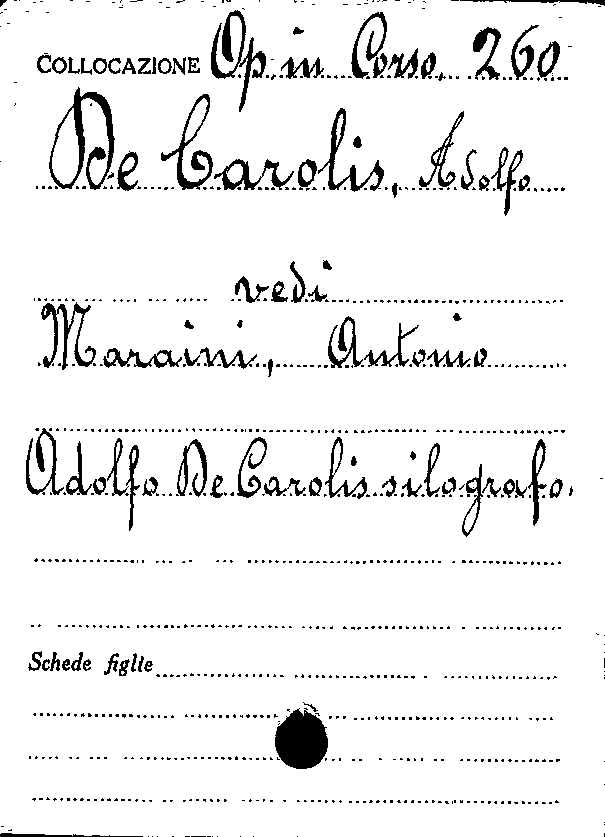 COLLOCAZIONE Op. in Corso. 260
De Carolis, Adolfo
vedi
Maraini, Antonio
Adolfo De Carolis silografo.
Schede figlie